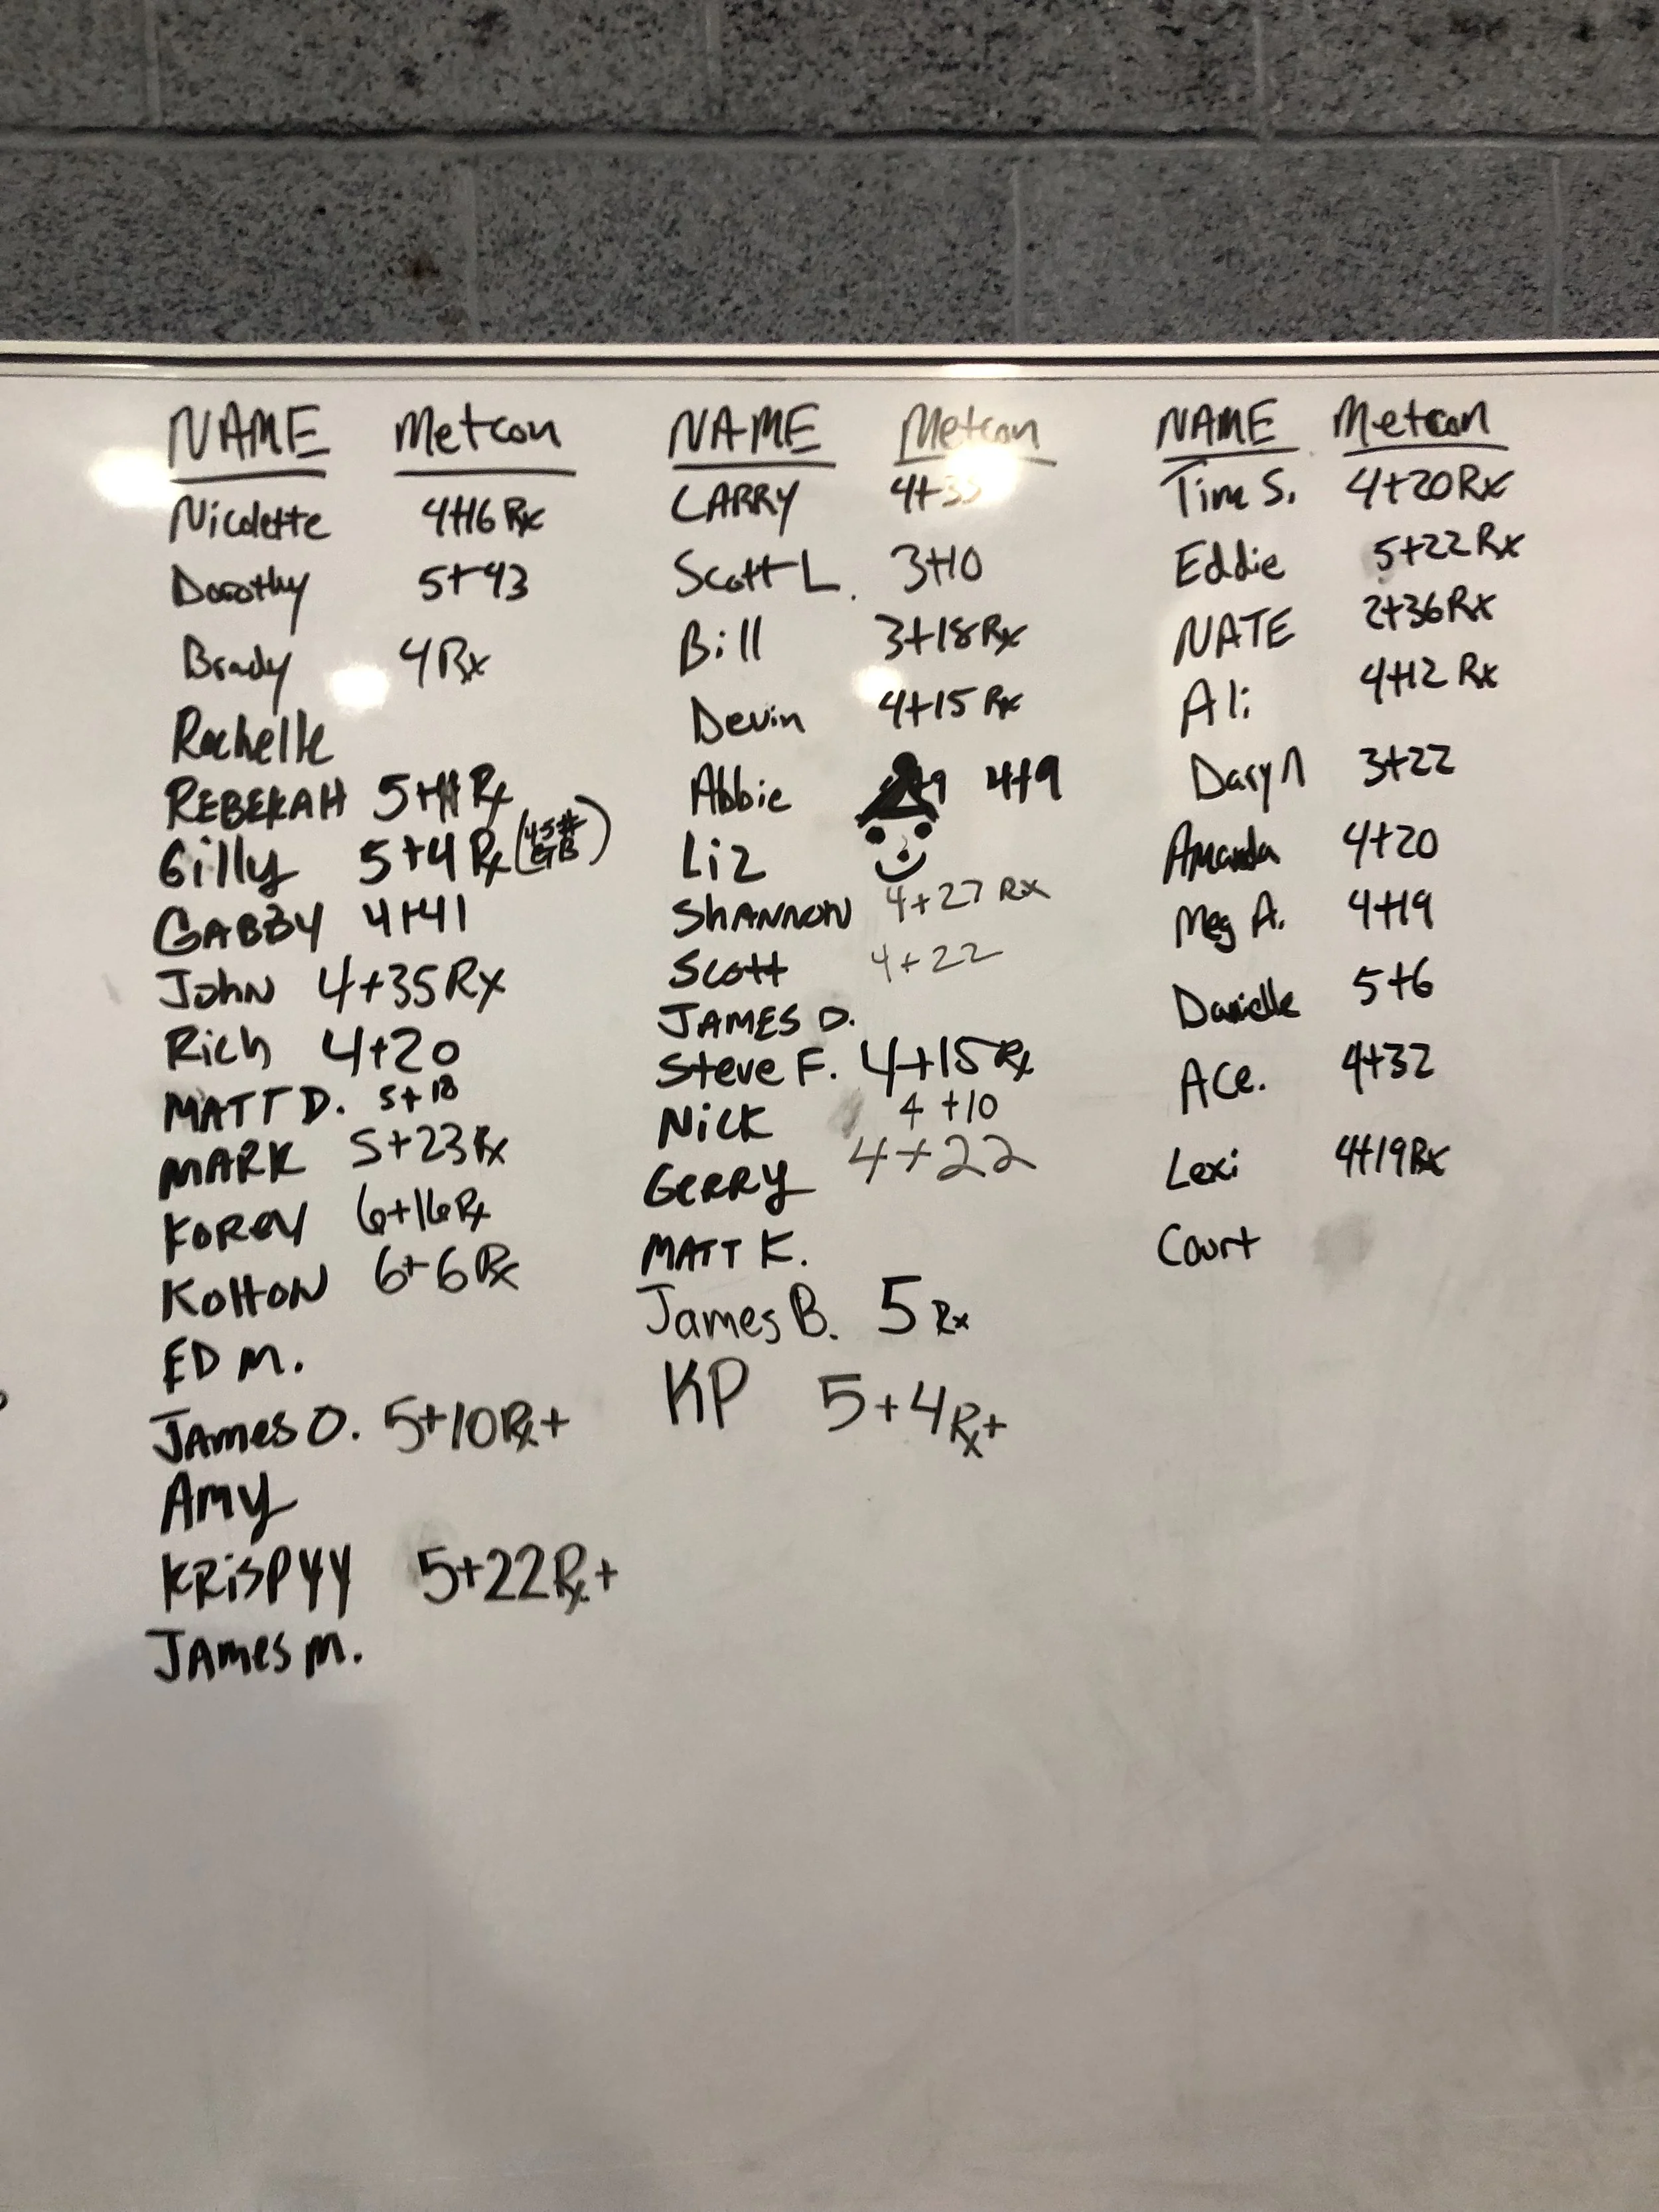 NAME Metcon
Nicolette 4+16 Rx
Dorothy 5+43
Brady 4 Rx
Rachelle
REBEKAH 5+ Rx
Gilly 5+4 Rx (45# GB)
GABBY 4+41
John 4+35 Rx
Rich 4+20
MATT D. 5+18
MARK 5+23 Rx
KOREY 6+16 Rx
KOLTON 6+6 Rx
ED M.
James O. 5+10 Rx+
Amy
KRISPYY 5+22 Rx+
James M.
NAME Metcon
LARRY 4+33
Scott L. 3+10
Bill 3+18 Rx
Devin 4+15 Rx
Abbie 4+9
Liz
SHANNON 4+27 Rx
Scott 4+22
JAMES D.
Steve F. 4+15 Rx
Nick 4+10
Gerry 4+22
MATT K.
James B. 5 Rx
KP 5+4 Rx+
NAME Metcon
Tim S. 4+20 Rx
Eddie 5+22 Rx
NATE 2+36 Rx
Ali 4+12 Rx
Daryn 3+22
Amanda 4+20
Meg A. 4+19
Danielle 5+6
Ace. 4+32
Lexi 4+19 Rx
Court